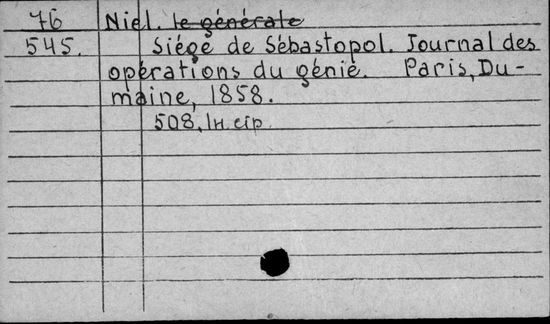 76 Niel. le générale
545. Siége de Sébastopol. Journal des
opérations du génie. Paris, Du-
maine, 1858.
508, IH. cip.